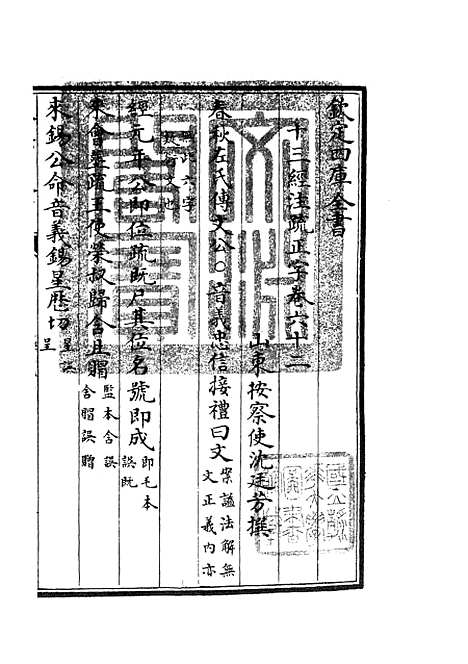 欽定四庫全書
十三經注疏正字卷六十二
山東按察使沈廷芳撰
春秋左氏傳文公〇音義忠信接禮曰文案諡法解無
文正義内亦
無此六字
經元年公即位疏既乃其位名號即成即毛本
誤既
來會葬疏王使榮叔歸含且賵監本含誤
舎賵誤贈
來錫公命音義錫星歴切星誤
呈